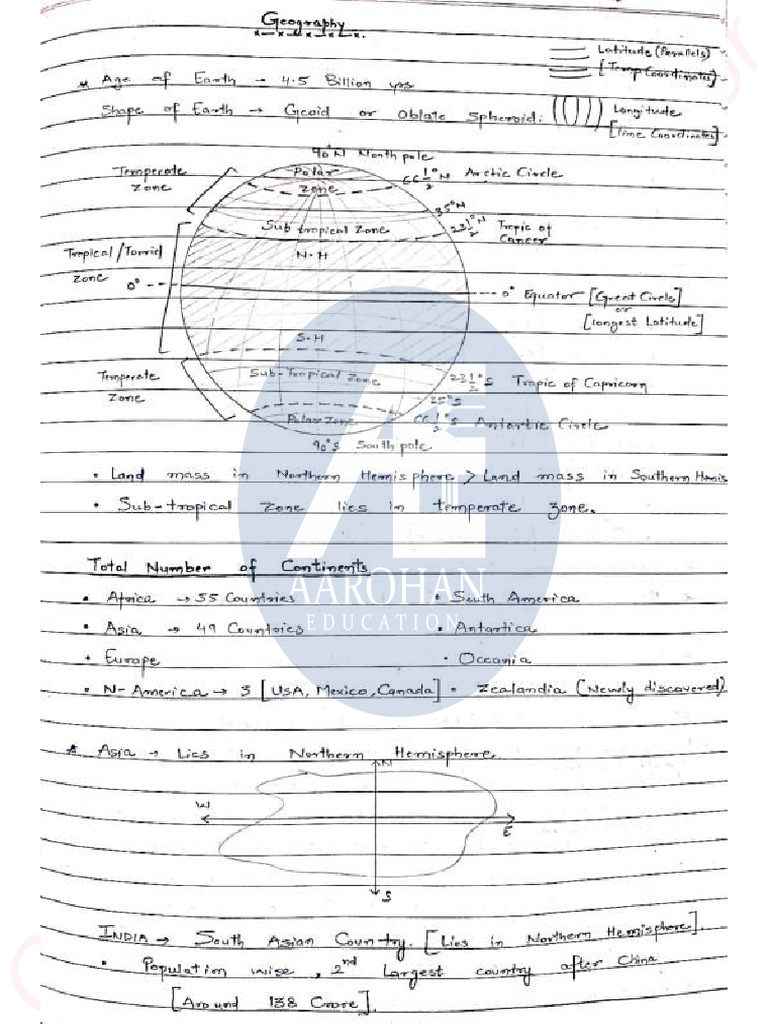 Geography
Latitude (Parallels)
[Temp Coordinates]
* Age of Earth - 4.5 Billion yrs
Shape of Earth → Geoid or Oblate Spheroid.
Longitude
[Time Coordinates]
90°N North pole
Temperate zone
Polar zone
66 1/2°N Arctic Circle
35°N
23 1/2°N Tropic of Cancer
Sub tropical Zone
N-H
Tropical/Torrid zone
0°
0° Equator [Great Circle]
or
[Longest Latitude]
S-H
Temperate zone
Sub-Tropical Zone
23 1/2°S Tropic of Capricorn
Polar Zone
66 1/2°S Antartic Circle
90°S South pole
• Land mass in Northern Hemisphere > Land mass in Southern Hemis
• Sub-tropical zone lies in temperate zone.
Total Number of Continents
• Africa → 55 Countries • South America
• Asia → 49 Countries • Antartica
• Europe • Oceania
• N-America → 3 [USA, Mexico, Canada] • Zealandia (Newly discovered)
AAROHAN
EDUCATION
* Asia → Lies in Northern Hemisphere.
N
W
E
S
INDIA → South Asian Country. [Lies in Northern Hemisphere].
• Population wise, 2nd Largest country after China
[Around 138 Crore].